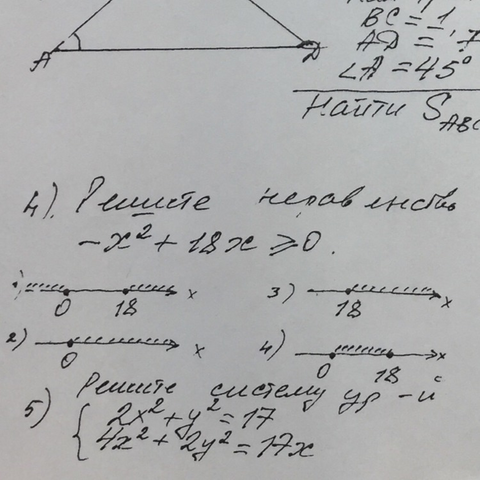 BC = 1,
A
D
AD = 7
∠A = 45°
Найти S ABC
4). Решите неравенство
-x² + 18x ⩾ 0.
1) 0 18 x
3) 18 x
2) 0 x
4) 0 18 x
5) Решите систему ур-й
2x² + y² = 17
4x² + 2y² = 17x